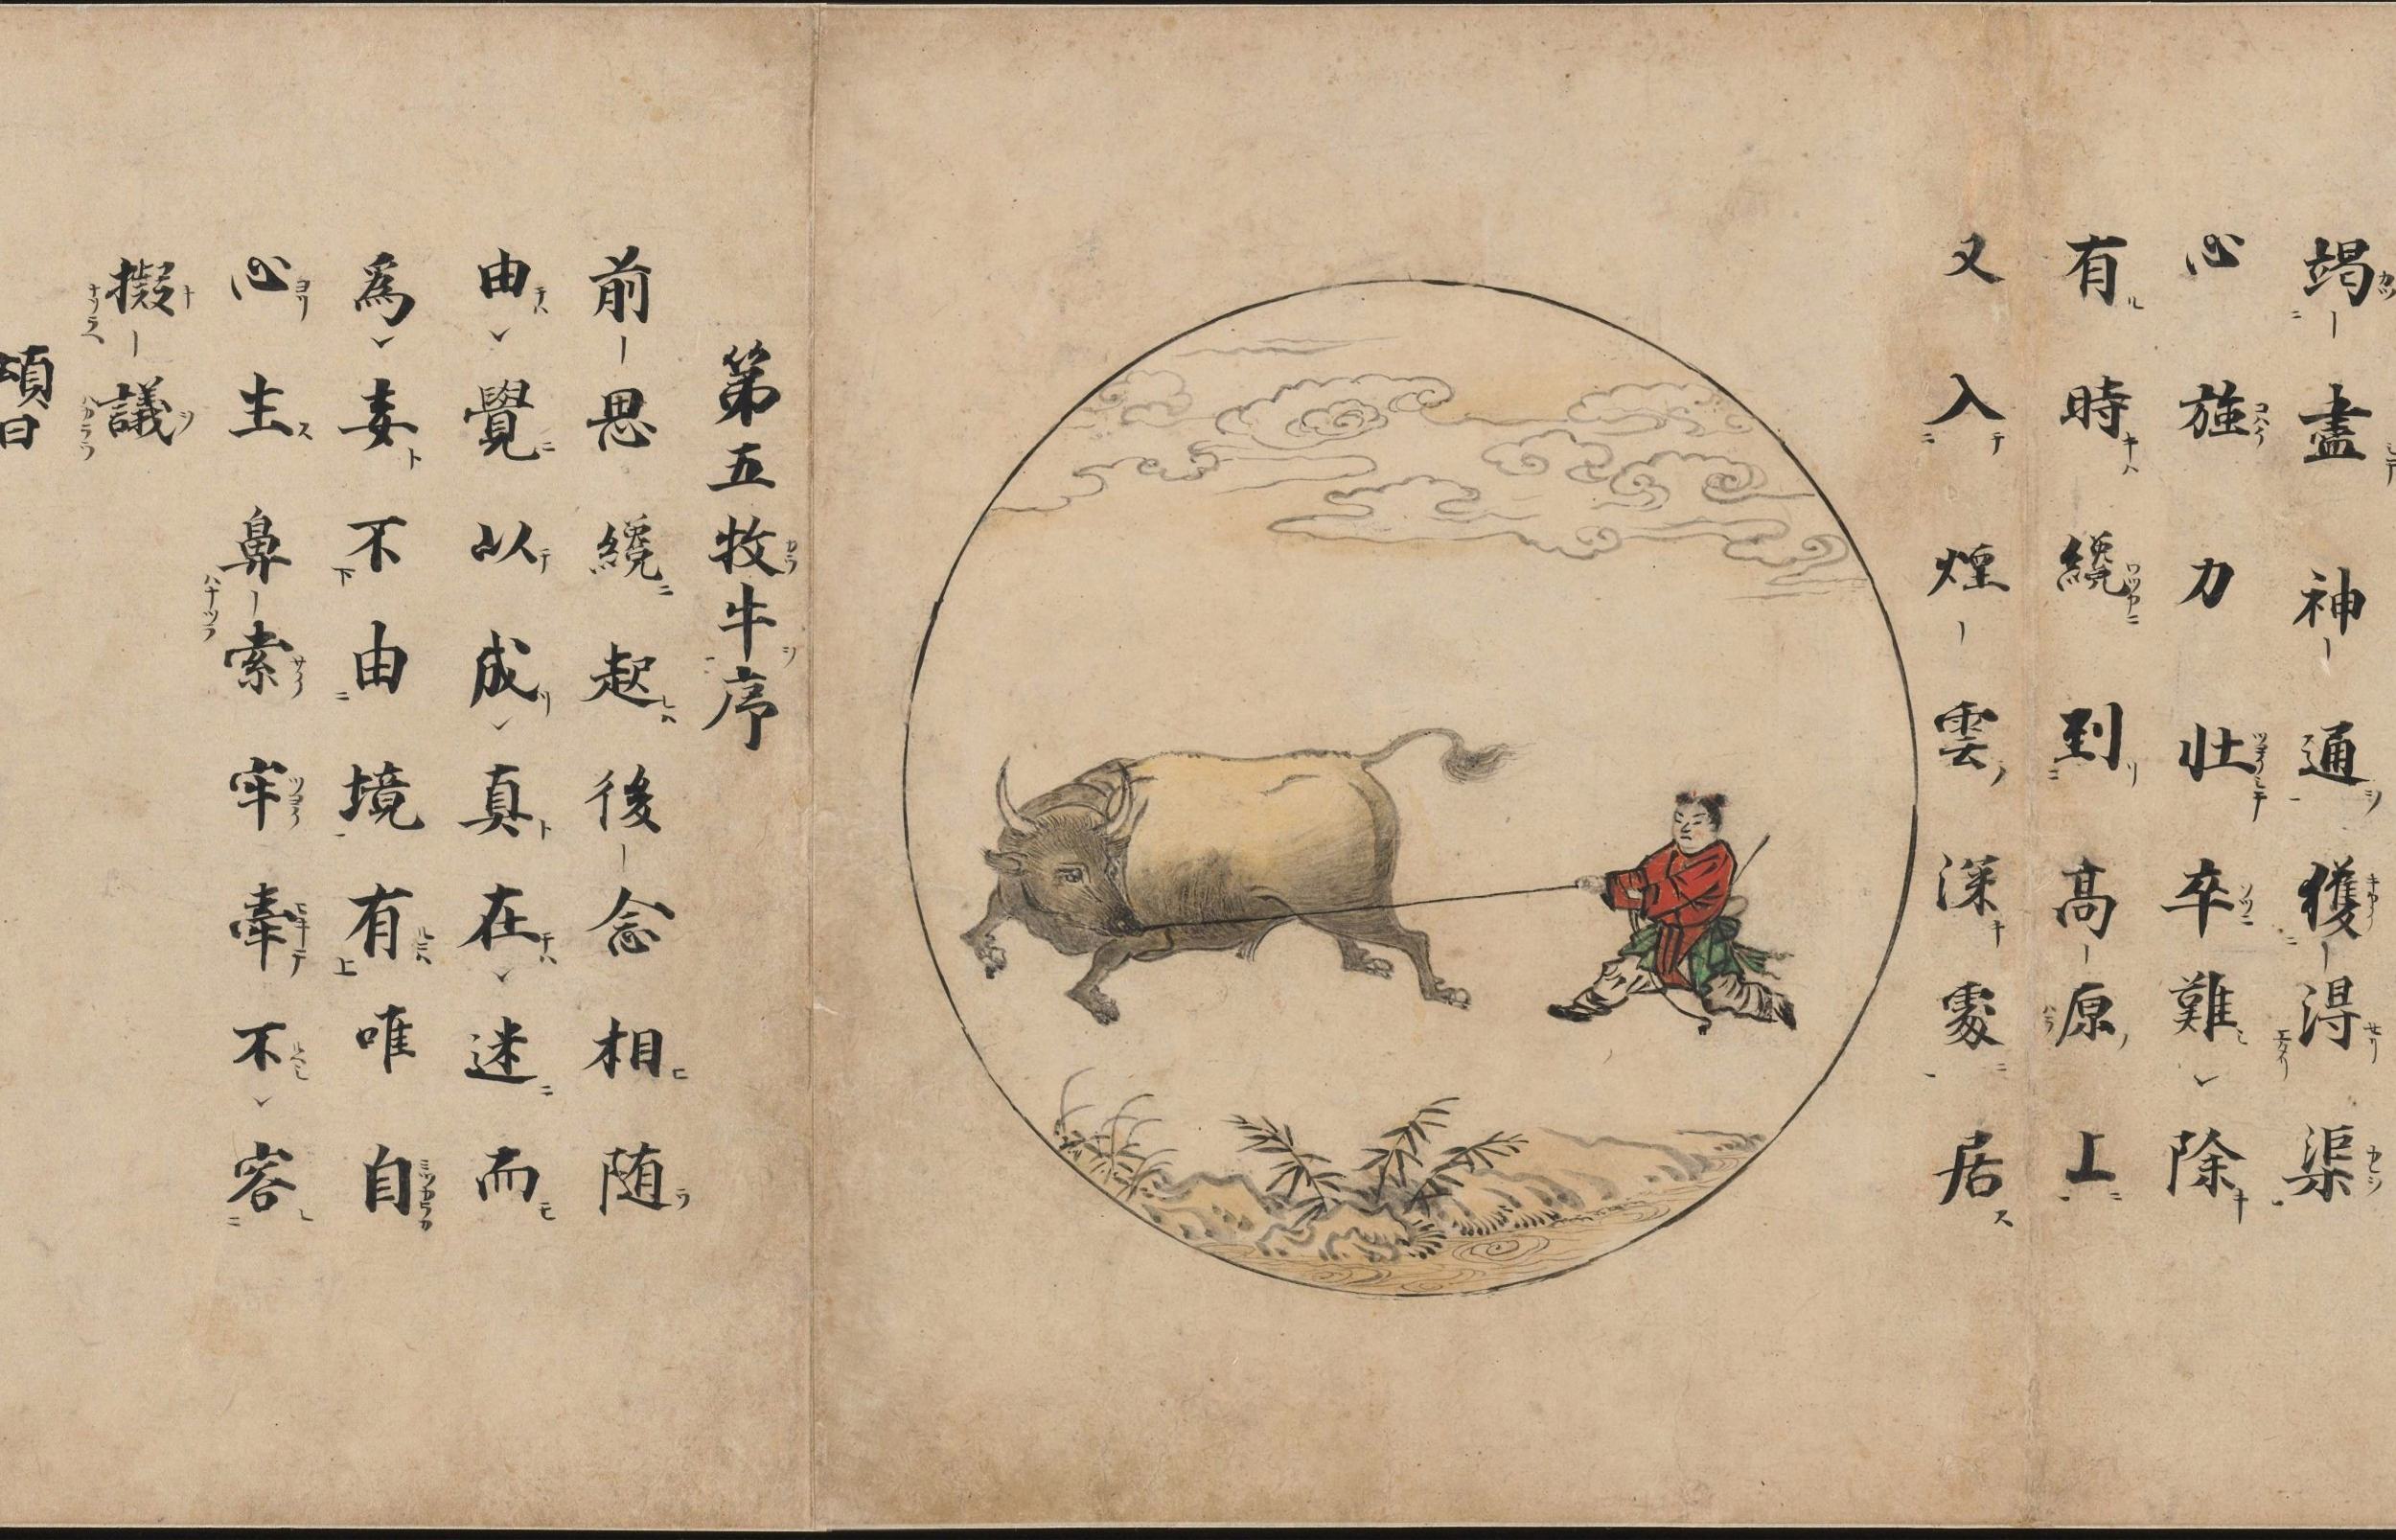 竭盡神通獲得渠
心強力壯卒難除
有時纔到髙原上
又入煙雲深處居
第五牧牛序
前思纔起後念相随
由覺以成真在迷而
爲妄不由境有唯自
心生鼻索牢牽不容
擬議
頌曰